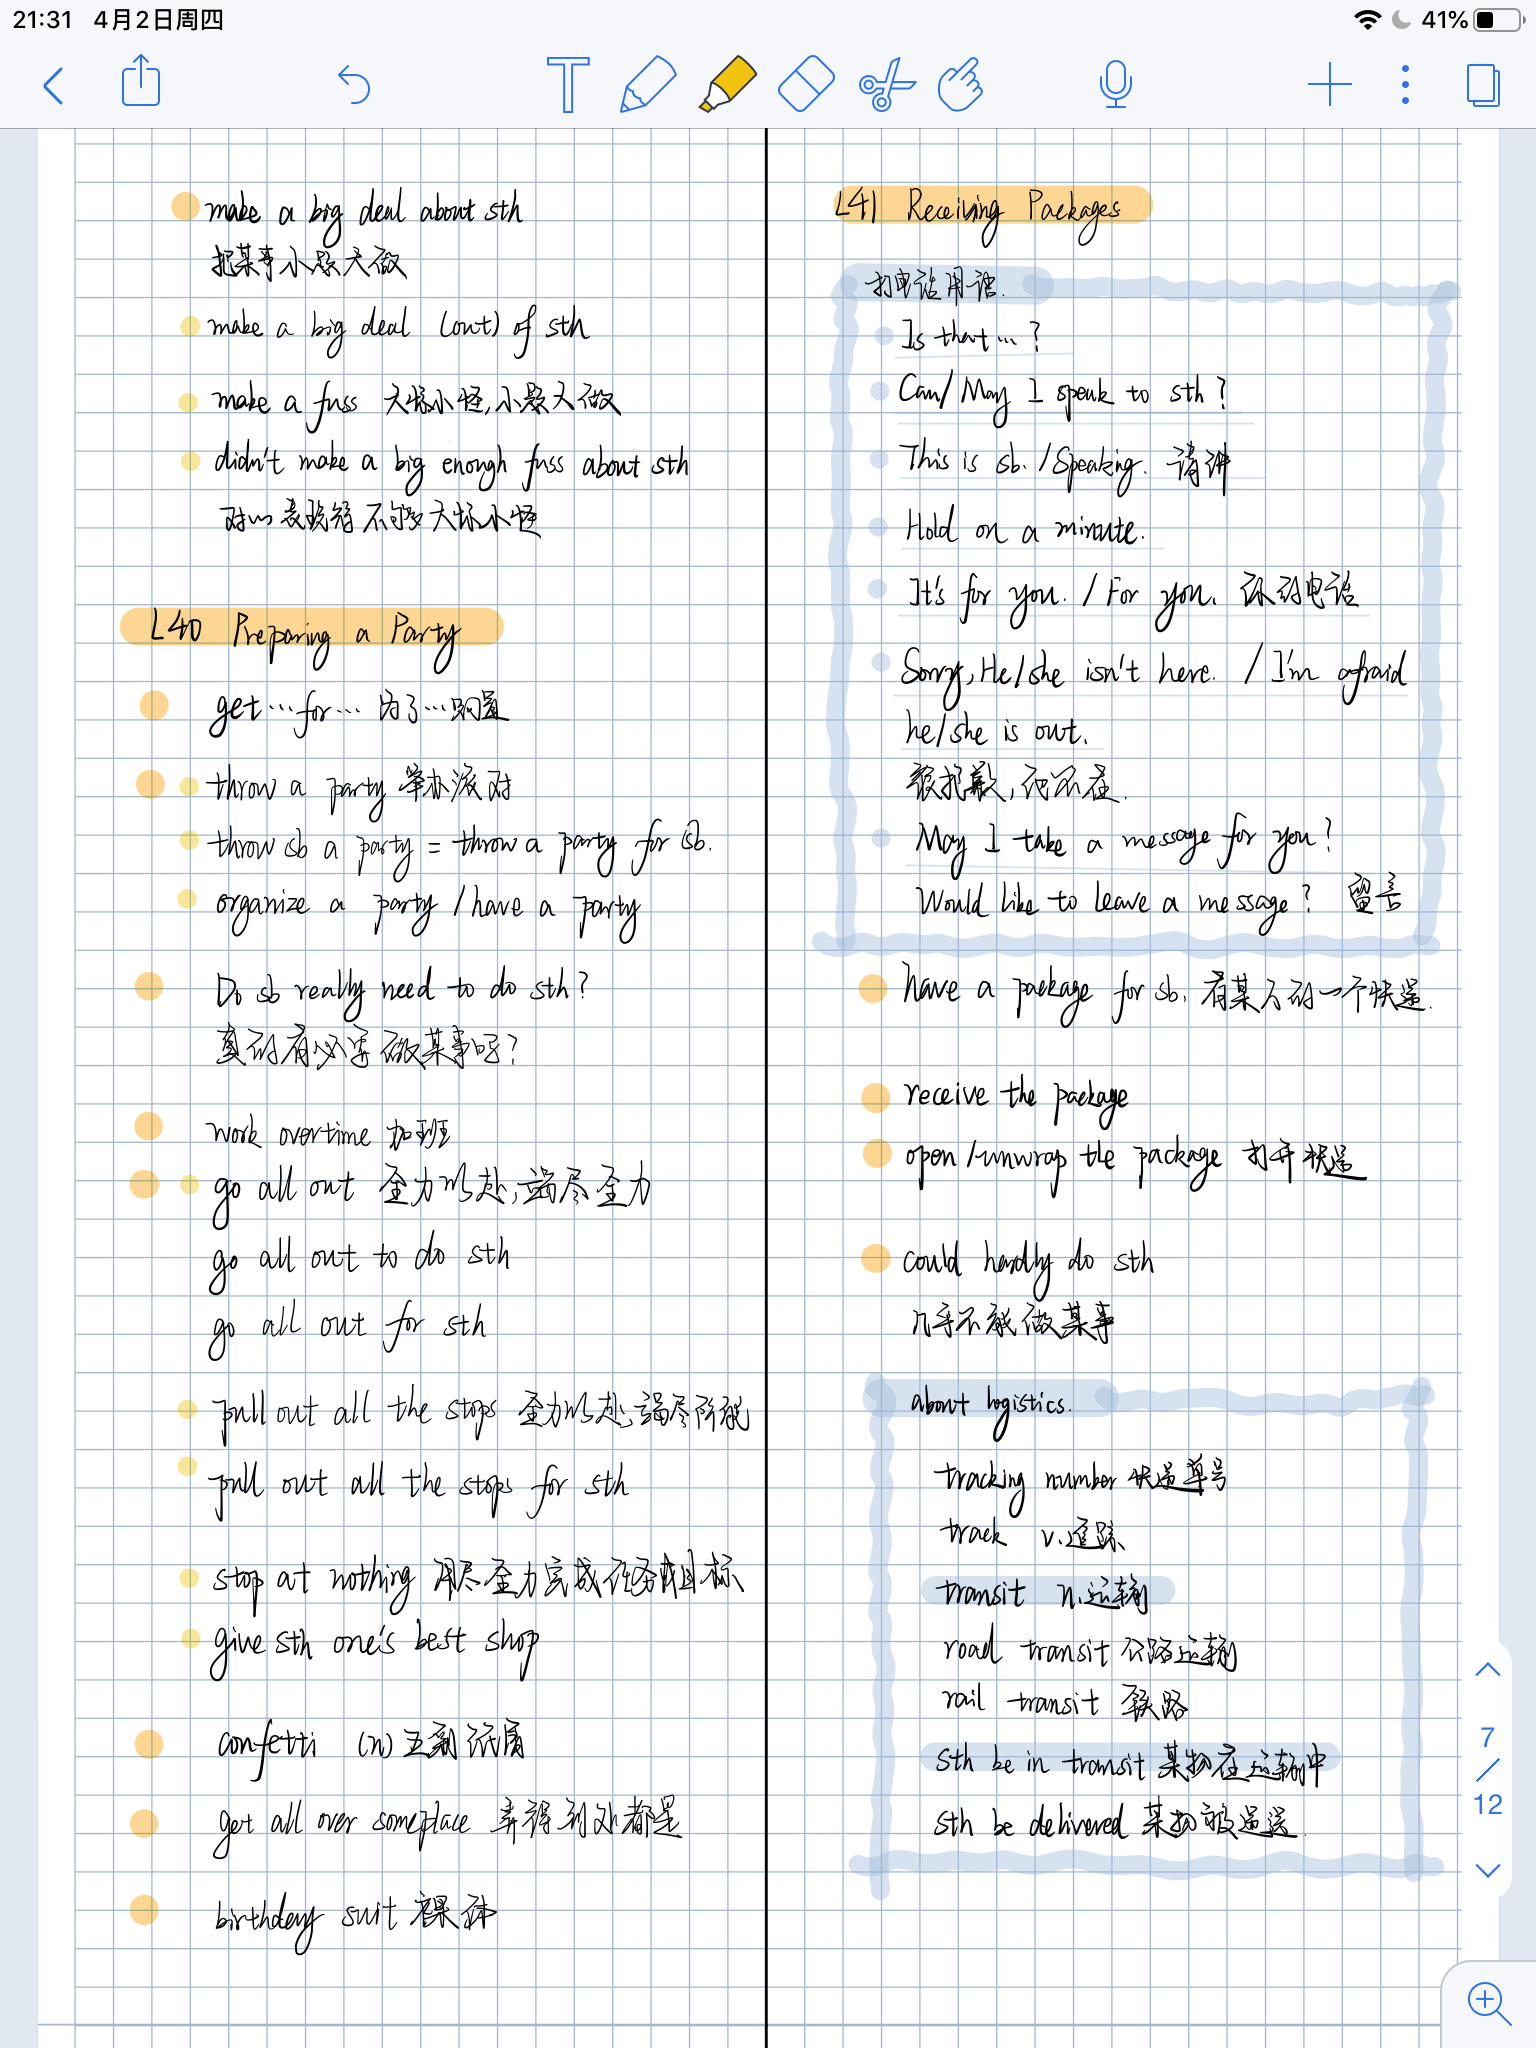 21:31 4月2日周四
41%
make a big deal about sth
把某事小题大做
make a big deal (out) of sth
make a fuss 大惊小怪,小题大做
didn't make a big enough fuss about sth
对… 表现得不够大惊小怪
L40 Preparing a Party
get…for… 为了…购置
throw a party 举办派对
throw sb a party = throw a party for sb.
organize a party / have a party
Do sb really need to do sth?
真的有必要做某事吗?
work overtime 加班
go all out 全力以赴,竭尽全力
go all out to do sth
go all out for sth
pull out all the stops 全力以赴,竭尽所能
pull out all the stops for sth
stop at nothing 用尽全力完成任务或目标
give sth one's best shop
confetti (n) 五彩纸屑
get all over someplace 弄得到处都是
birthday suit 裸体
L41 Receiving Packages
打电话用语.
Is that…?
Can/May I speak to sth?
This is sb. / Speaking. 请讲
Hold on a minute.
It's for you. / For you. 你的电话
Sorry, He/she isn't here. / I'm afraid
he/she is out.
很抱歉,他不在.
May I take a message for you?
Would like to leave a message? 留言
have a package for sb. 有某人的一个快递.
receive the package
open/unwrap the package 打开快递
could hardly do sth
几乎不能做某事
about logistics.
tracking number 快递单号
track v.追踪
transit n.运输
road transit 公路运输
rail transit 铁路
sth be in transit 某物在运输中
sth be delivered 某物被递送.
7
/
12